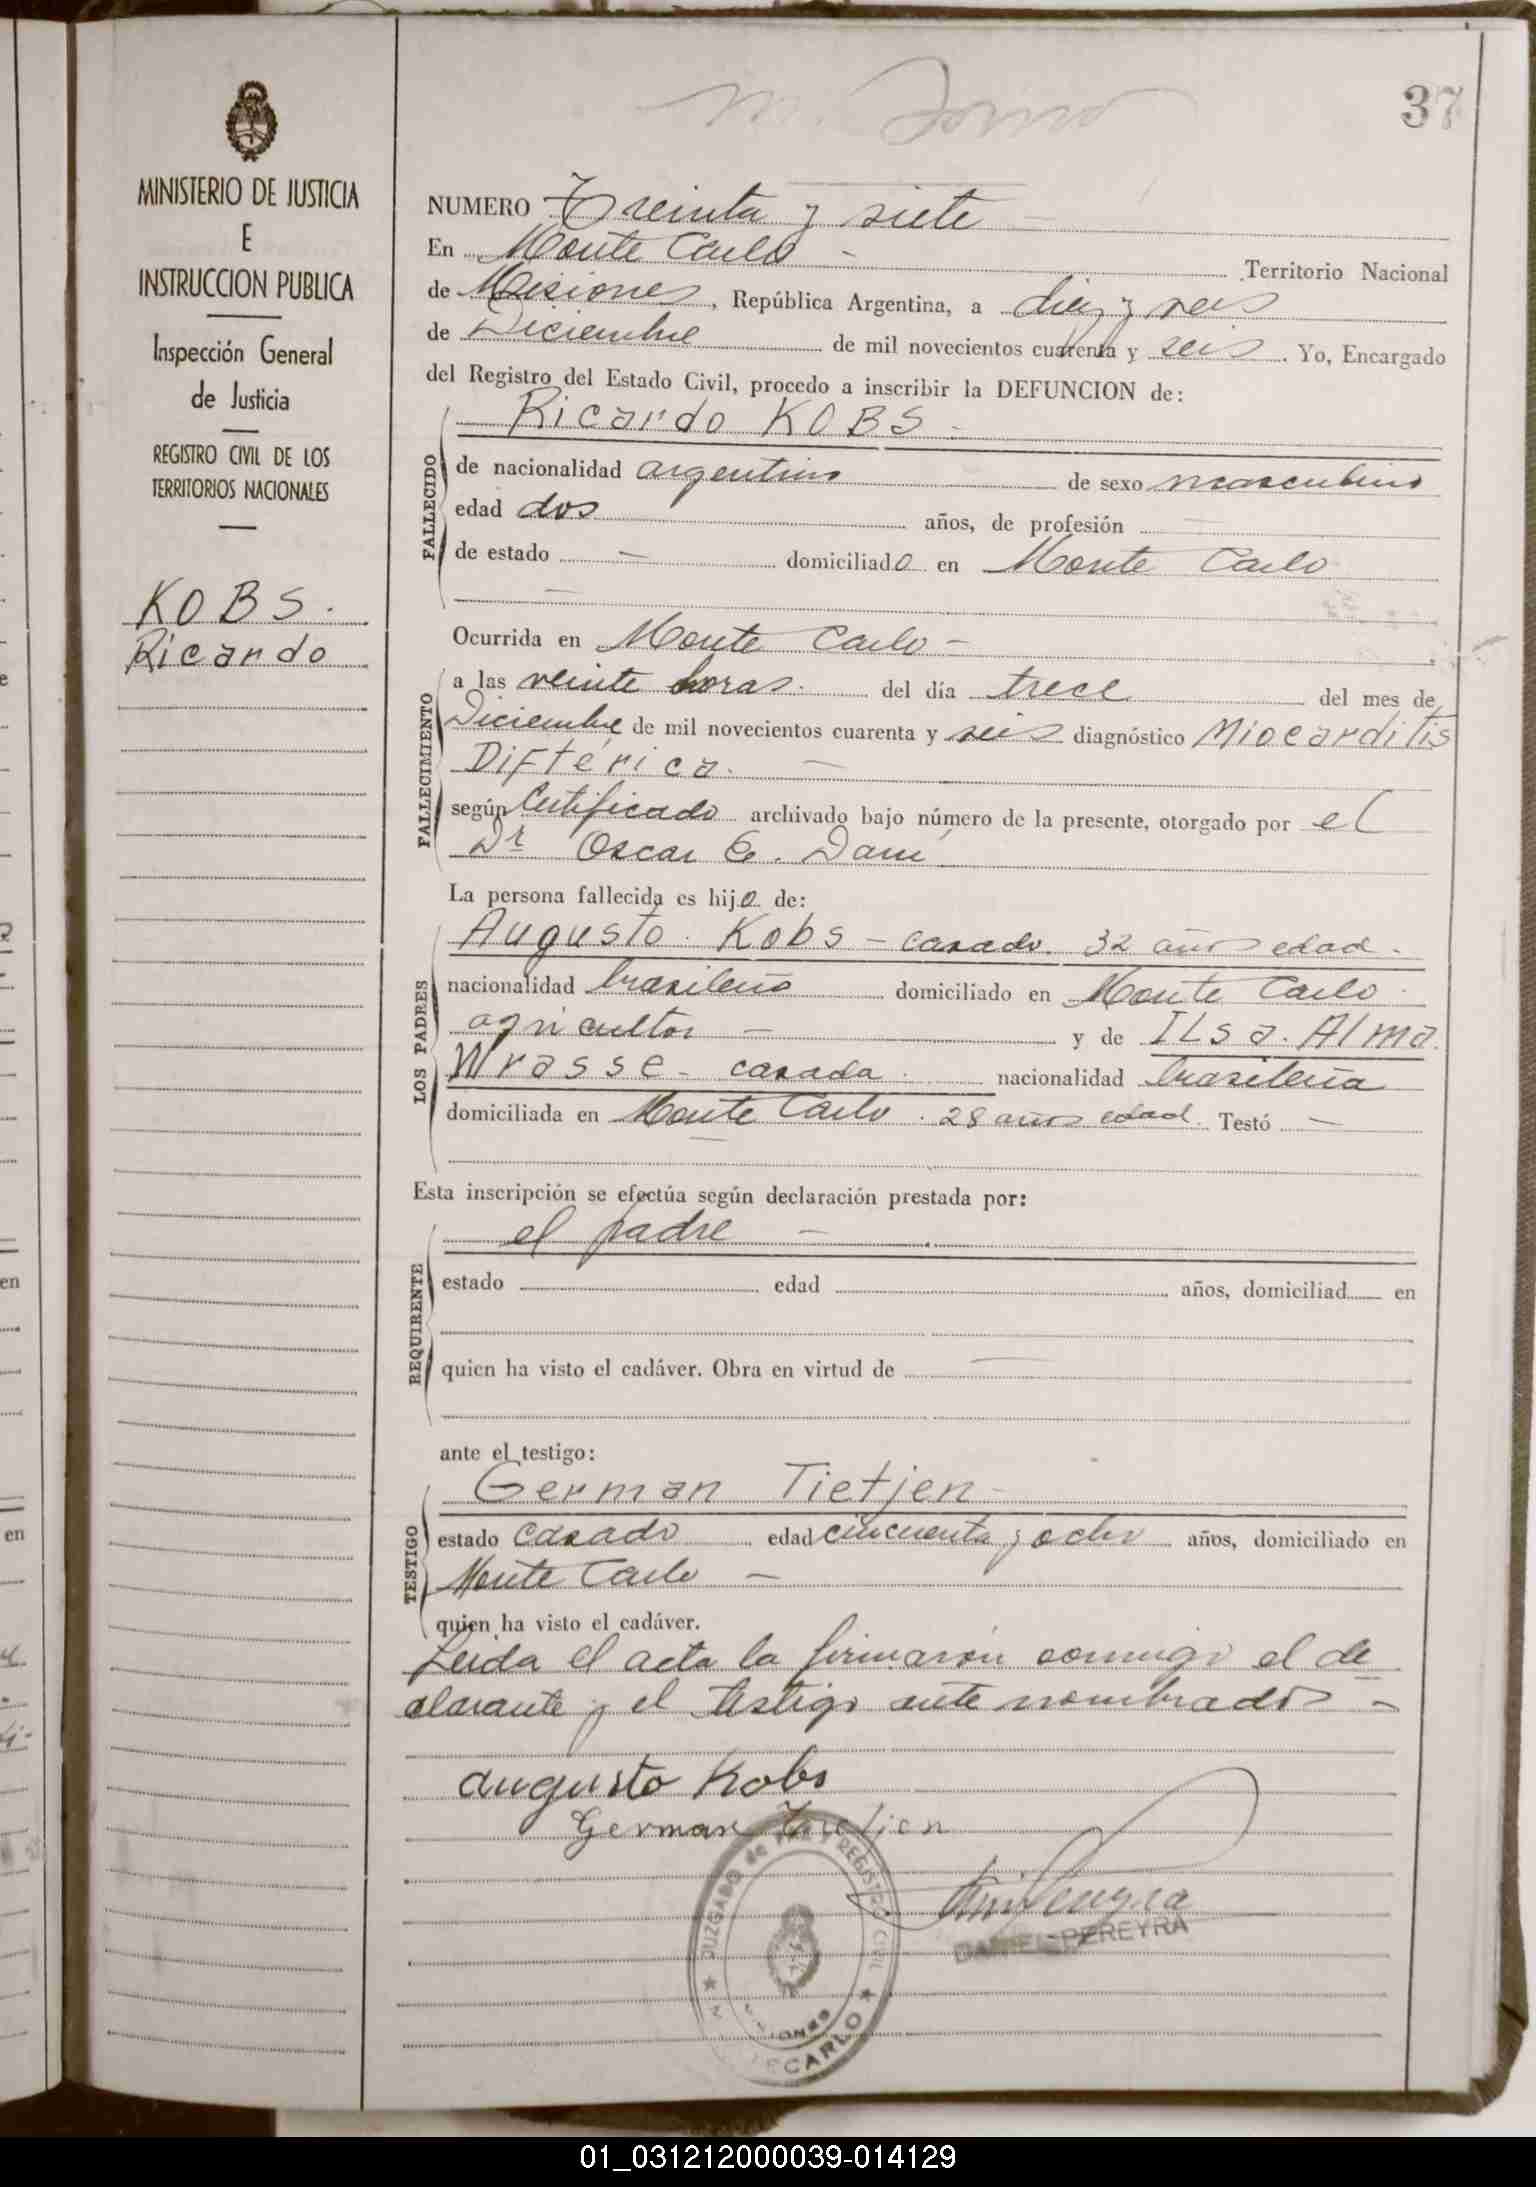 37
MINISTERIO DE JUSTICIA
E
INSTRUCCION PUBLICA
Inspección General
de Justicia
REGISTRO CIVIL DE LOS
TERRITORIOS NACIONALES
KOBS.
Ricardo
NUMERO Treinta y siete
En Monte Carlo - Territorio Nacional
de Misiones, República Argentina, a diez y seis
de Diciembre de mil novecientos cuarenta y seis. Yo, Encargado
del Registro del Estado Civil, procedo a inscribir la DEFUNCION de:
Ricardo KOBS -
FALLECIDO
de nacionalidad argentino de sexo masculino
edad dos años, de profesión —
de estado — domiciliado en Monte Carlo
—
Ocurrida en Monte Carlo -
FALLECIMIENTO
a las veinte horas. del día trece del mes de
Diciembre de mil novecientos cuarenta y seis diagnóstico Miocarditis
Diftérica. —
según Certificado archivado bajo número de la presente, otorgado por el
Dr Oscar
La persona fallecida es hijo de:
LOS PADRES
Augusto. Kobs - casado. 32 años edad -
nacionalidad brasileño domiciliado en Monte Carlo.
agricultor — y de ILsa. Alma.
Wrasse - casada. nacionalidad brasileña
domiciliada en Monte Carlo. 28 años edad. Testó —
Esta inscripción se efectúa según declaración prestada por:
REQUIRENTE
el padre —
estado edad años, domiciliad en
quien ha visto el cadáver. Obra en virtud de —
ante el testigo:
TESTIGO
German Tietjen -
estado casado edad cincuenta y ocho años, domiciliado en
Monte Carlo —
quien ha visto el cadáver.
Leida el acta la firmaron conmigo el de
clarante y el testigo ante nombrados -
Augusto Kobs
German Tietjen
JUZGADO de PAZ Y REGISTRO CIVIL
MISIONES
MONTECARLO
DANIEL PEREYRA
01_031212000039-014129